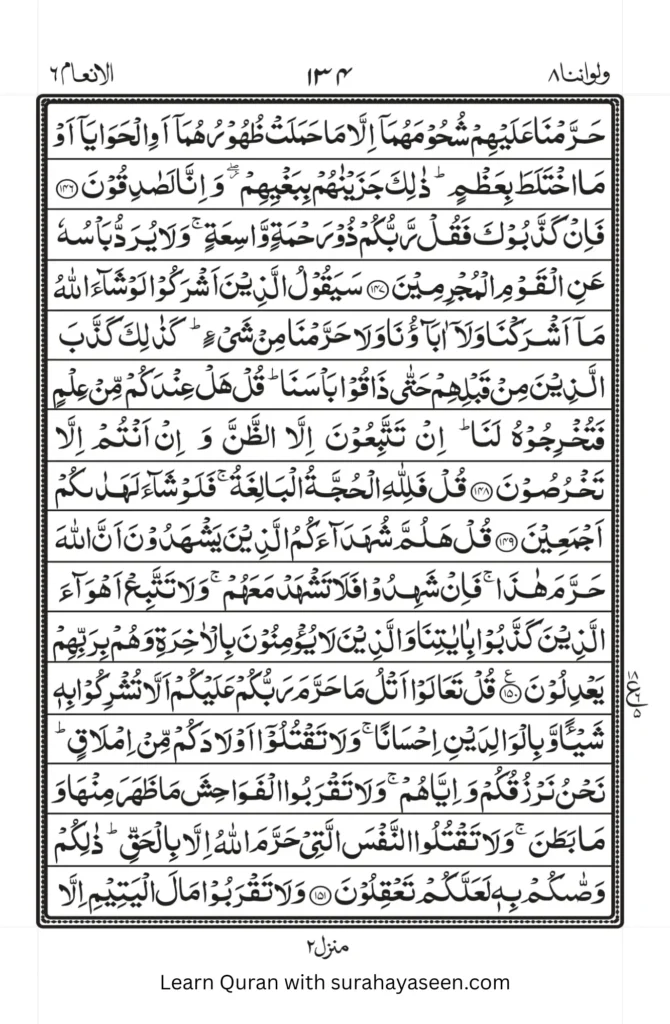 ولواننا ٨ ١٣٤ الانعام ٦
حَرَّمْنَا عَلَيْهِمْ شُحُوْمَهُمَاۤ اِلَّا مَا حَمَلَتْ ظُهُوْرُهُمَاۤ اَوِ الْحَوَايَاۤ اَوْ
مَا اخْتَلَطَ بِعَظْمٍ ؕ ذٰلِكَ جَزَيْنٰهُمْ بِبَغْيِهِمْ ۖ وَ اِنَّا لَصٰدِقُوْنَ ﴿۱۴۶﴾
فَاِنْ كَذَّبُوْكَ فَقُلْ رَّبُّكُمْ ذُوْ رَحْمَةٍ وَّاسِعَةٍ ۚ وَلَا يُرَدُّ بَاْسُهٗ
عَنِ الْقَوْمِ الْمُجْرِمِيْنَ ﴿۱۴۷﴾ سَيَقُوْلُ الَّذِيْنَ اَشْرَكُوْا لَوْ شَآءَ اللّٰهُ
مَاۤ اَشْرَكْنَا وَلَاۤ اٰبَآؤُنَا وَلَا حَرَّمْنَا مِنْ شَیْءٍ ؕ كَذٰلِكَ كَذَّبَ
الَّذِيْنَ مِنْ قَبْلِهِمْ حَتّٰی ذَاقُوْا بَاْسَنَا ؕ قُلْ هَلْ عِنْدَكُمْ مِّنْ عِلْمٍ
فَتُخْرِجُوْهُ لَنَا ؕ اِنْ تَتَّبِعُوْنَ اِلَّا الظَّنَّ وَ اِنْ اَنْتُمْ اِلَّا
تَخْرُصُوْنَ ﴿۱۴۸﴾ قُلْ فَلِلّٰهِ الْحُجَّةُ الْبَالِغَةُ ۚ فَلَوْ شَآءَ لَهَدٰىكُمْ
اَجْمَعِيْنَ ﴿۱۴۹﴾ قُلْ هَلُمَّ شُهَدَآءَكُمُ الَّذِيْنَ يَشْهَدُوْنَ اَنَّ اللّٰهَ
حَرَّمَ هٰذَا ۚ فَاِنْ شَهِدُوْا فَلَا تَشْهَدْ مَعَهُمْ ۚ وَلَا تَتَّبِعْ اَهْوَآءَ
الَّذِيْنَ كَذَّبُوْا بِاٰيٰتِنَا وَالَّذِيْنَ لَا يُؤْمِنُوْنَ بِالْاٰخِرَةِ وَهُمْ بِرَبِّهِمْ
يَعْدِلُوْنَ ﴿۱۵۰﴾ ع قُلْ تَعَالَوْا اَتْلُ مَا حَرَّمَ رَبُّكُمْ عَلَيْكُمْ اَلَّا تُشْرِكُوْا بِهٖ
شَيْـًٔا وَّ بِالْوَالِدَيْنِ اِحْسَانًا ۚ وَلَا تَقْتُلُوْۤا اَوْلَادَكُمْ مِّنْ اِمْلَاقٍ ؕ
نَحْنُ نَرْزُقُكُمْ وَ اِيَّاهُمْ ۚ وَلَا تَقْرَبُوا الْفَوَاحِشَ مَا ظَهَرَ مِنْهَا وَ
مَا بَطَنَ ۚ وَلَا تَقْتُلُوا النَّفْسَ الَّتِیْ حَرَّمَ اللّٰهُ اِلَّا بِالْحَقِّ ؕ ذٰلِكُمْ
وَصّٰىكُمْ بِهٖ لَعَلَّكُمْ تَعْقِلُوْنَ ﴿۱۵۱﴾ وَلَا تَقْرَبُوْا مَالَ الْيَتِيْمِ اِلَّا
منزل ٢
Learn Quran with surahayaseen.com